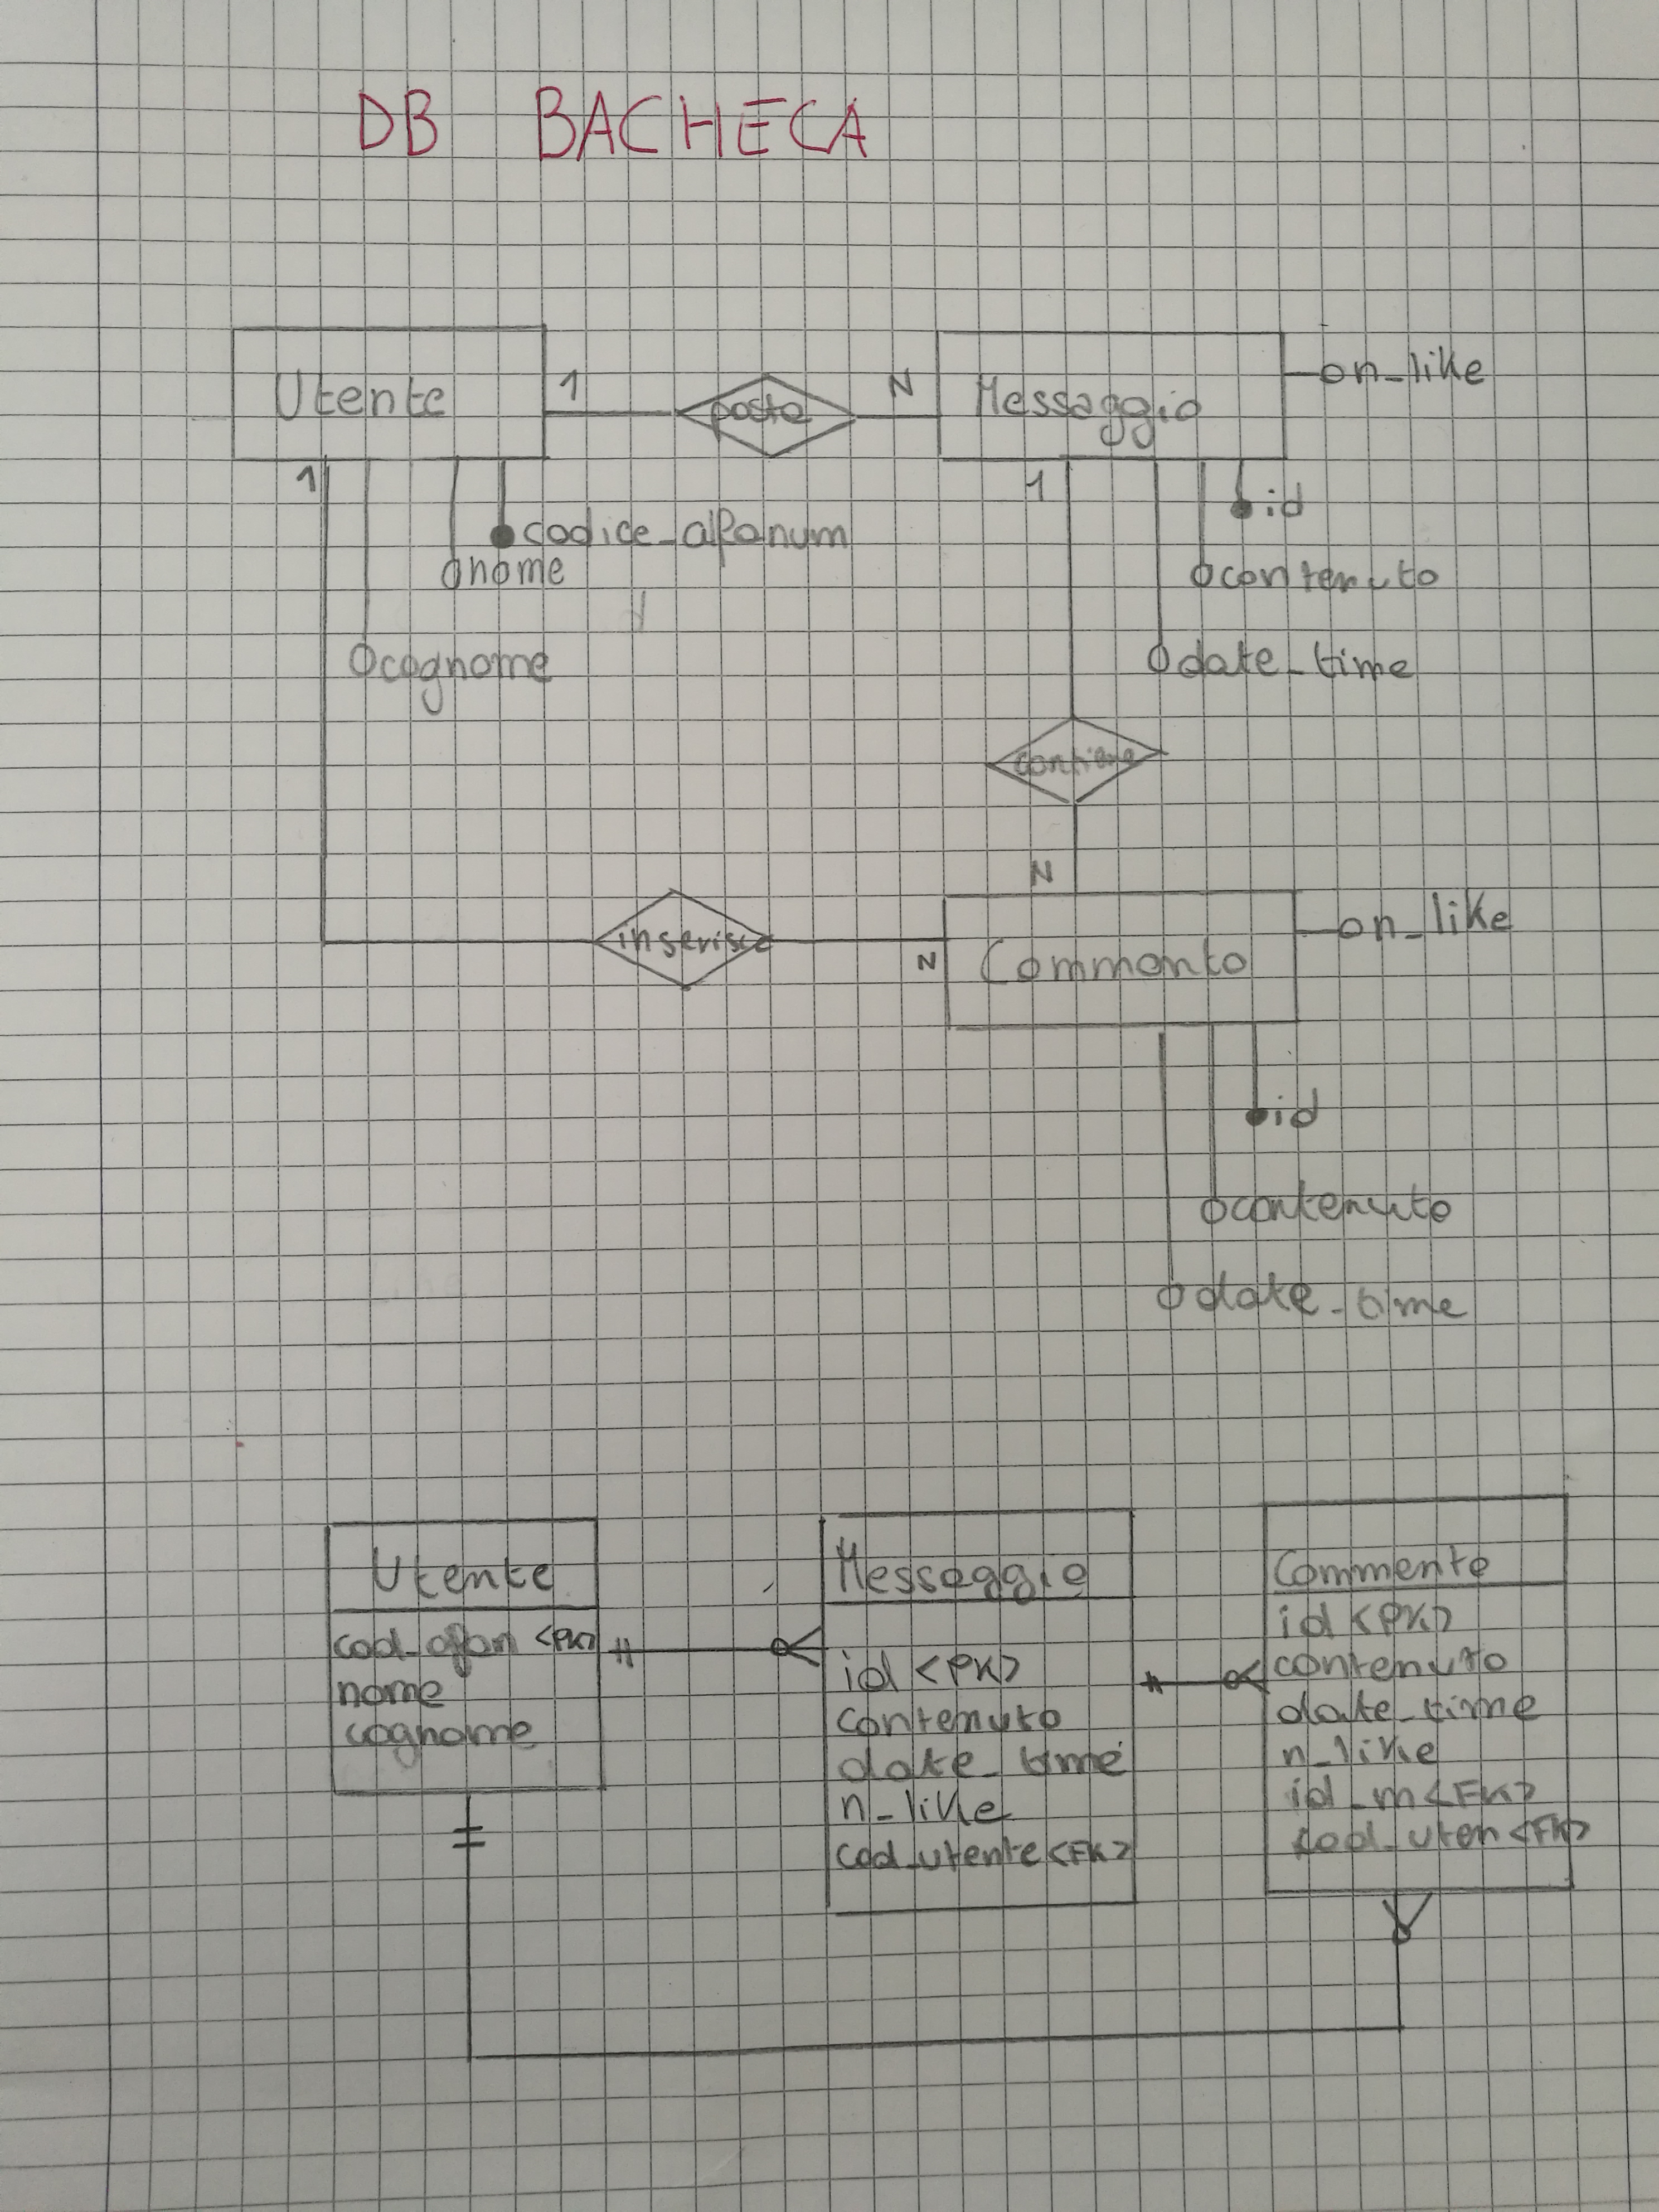 DB BACHECA
Utente
1
posta
N
Messaggio
n_like
1
1
id
codice_alfanum
nome
contenuto
cognome
date_time
contiene
N
inserisce
N
Commento
n_like
id
contenuto
date_time
Utente
cod_alfan <PK>
nome
cognome
Messaggio
id <PK>
contenuto
date_time
n_like
cod_utente <FK>
Commento
id <PK>
contenuto
date_time
n_like
id_m <FK>
cod_uten <FK>